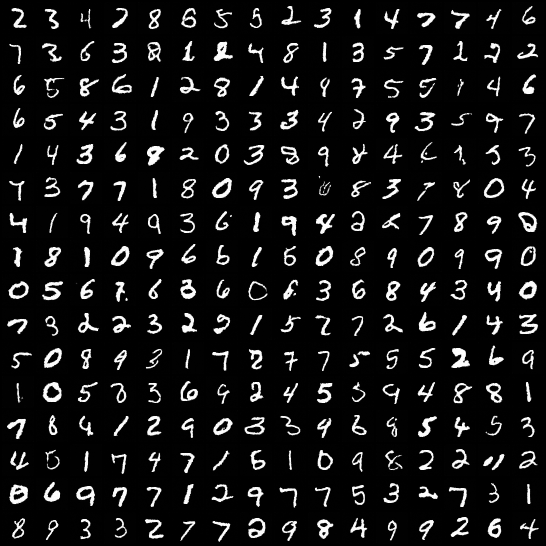 2 3 4 2 8 6 5 5 2 3 1 4 7 7 4 6
7 3 6 3 8 1 2 4 8 1 3 5 7 1 2 2
6 5 8 6 1 2 8 1 4 9 7 5 5 1 4 6
6 5 4 3 1 9 3 3 3 4 2 9 3 5 9 7
1 4 3 6 8 2 0 3 8 9 8 4 6 1 5 3
7 3 7 7 1 8 0 9 3 8 3 7 8 0 4
4 1 9 4 9 3 6 1 9 4 2 7 8 9 2
1 8 1 0 9 6 6 1 6 0 8 9 0 9 9 0
0 5 6 7 6 3 6 0 6 3 6 8 4 3 4 0
7 3 2 2 3 2 9 1 5 7 7 2 6 1 4 3
5 0 8 9 3 1 7 2 7 7 5 5 5 2 6 9
1 0 5 3 3 6 9 2 4 5 5 9 4 8 8 1
7 8 9 1 2 9 0 3 3 9 6 8 5 4 5 3
4 5 1 7 4 7 1 5 1 0 9 8 2 2 2
0 6 9 7 7 1 2 9 7 7 5 3 2 7 3 1
8 9 3 3 2 7 7 2 9 8 4 9 9 2 6 4